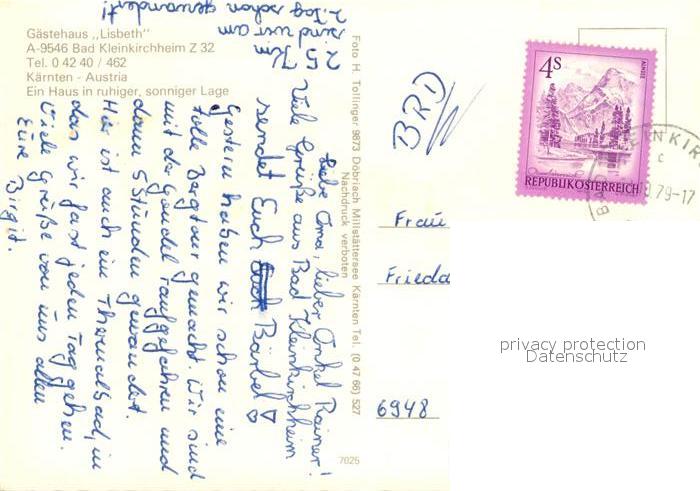 Gästehaus „Lisbeth"
A-9546 Bad Kleinkirchheim Z 32
Tel. 0 42 40 / 462
Kärnten - Austria
Ein Haus in ruhiger, sonniger Lage
Liebe Oma, lieber Onkel Rainer!
Viele Grüße aus Bad Kleinkirchheim
sendet Euch Bärbel
Gestern haben wir schon eine
tolle Bergtour gemacht. Wir sind
mit der Gondel raufgefahren und
dann 5 Stunden gewandert.
Hier ist auch ein Thermalbad, in
das wir fast jeden Tag gehen.
Viele Grüße von uns allen
Eure Birgit.
25 km
sind wir am
2. Tag schon gewandert!
Foto H. Tollinger 9873 Döbriach Millstättersee Kärnten Tel. (0 47 66) 527
Nachdruck verboten
7025
BRD
Frau
Frieda
6948
4S
REPUBLIK ÖSTERREICH
79-17
privacy protection
Datenschutz